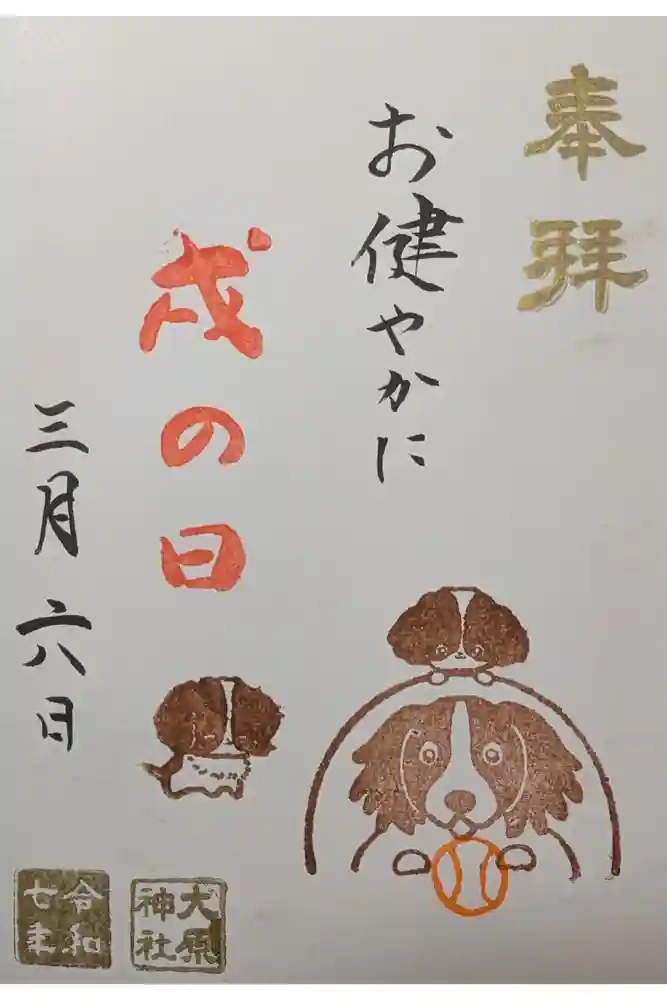 奉拝
お健やかに
戌の日
三月六日
大原
神社
令和
七年